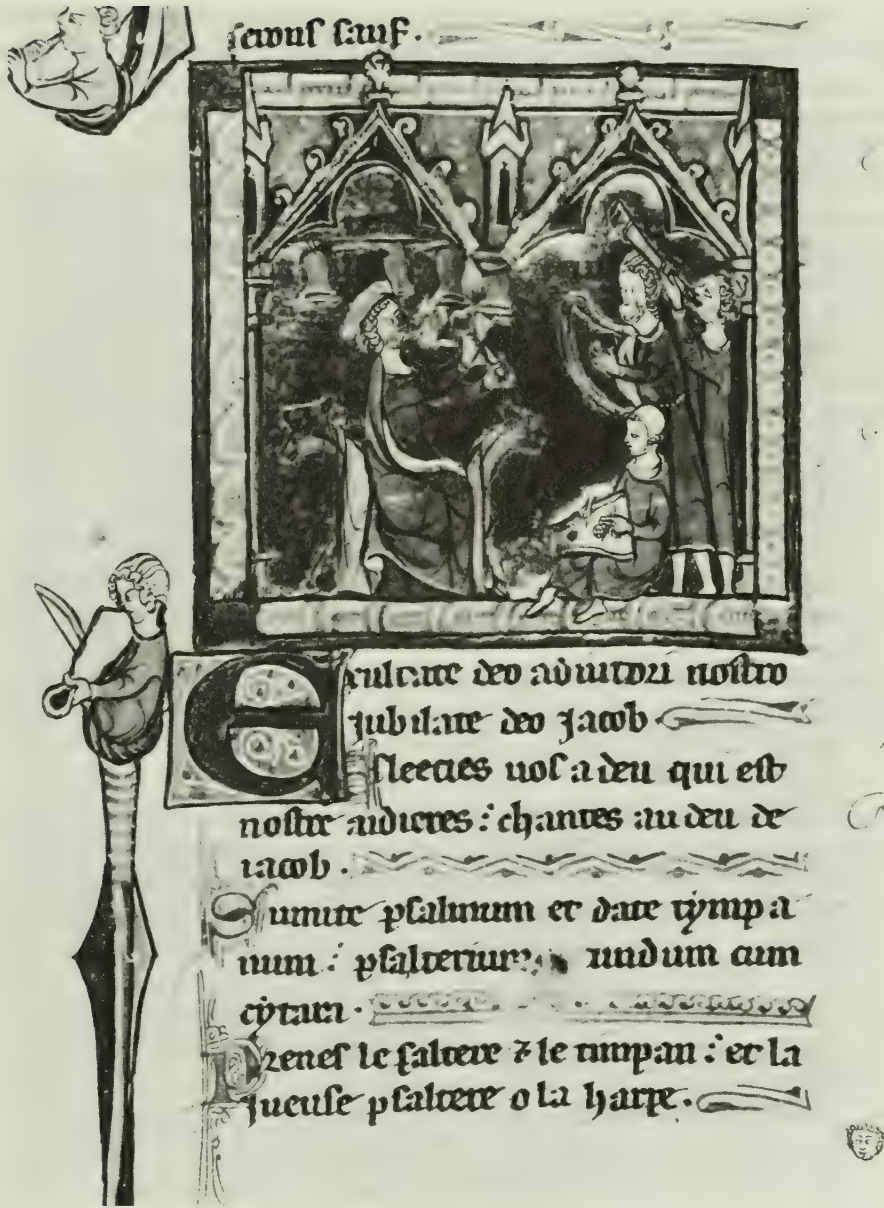 serons sauf.
Exultate deo adiutori nostro
jubilate deo jacob
Esleecies vos a deu qui est
nostre aidieres : chantes au deu de
iacob.
Sumite psalmum et date tympa
num : psalterium iundum cum
cytara.
Prenes le saltere ⁊ le timpan : et la
jueuse psaltere o la harpe.